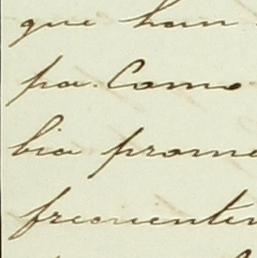 que han
pa. Como
bia prome
frecuente